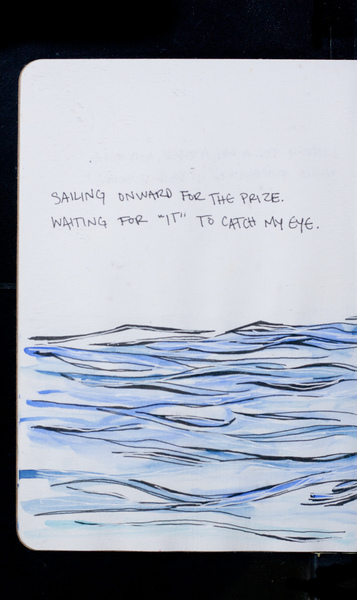 SAILING ONWARD FOR THE PRIZE.
WAITING FOR "IT" TO CATCH MY EYE.